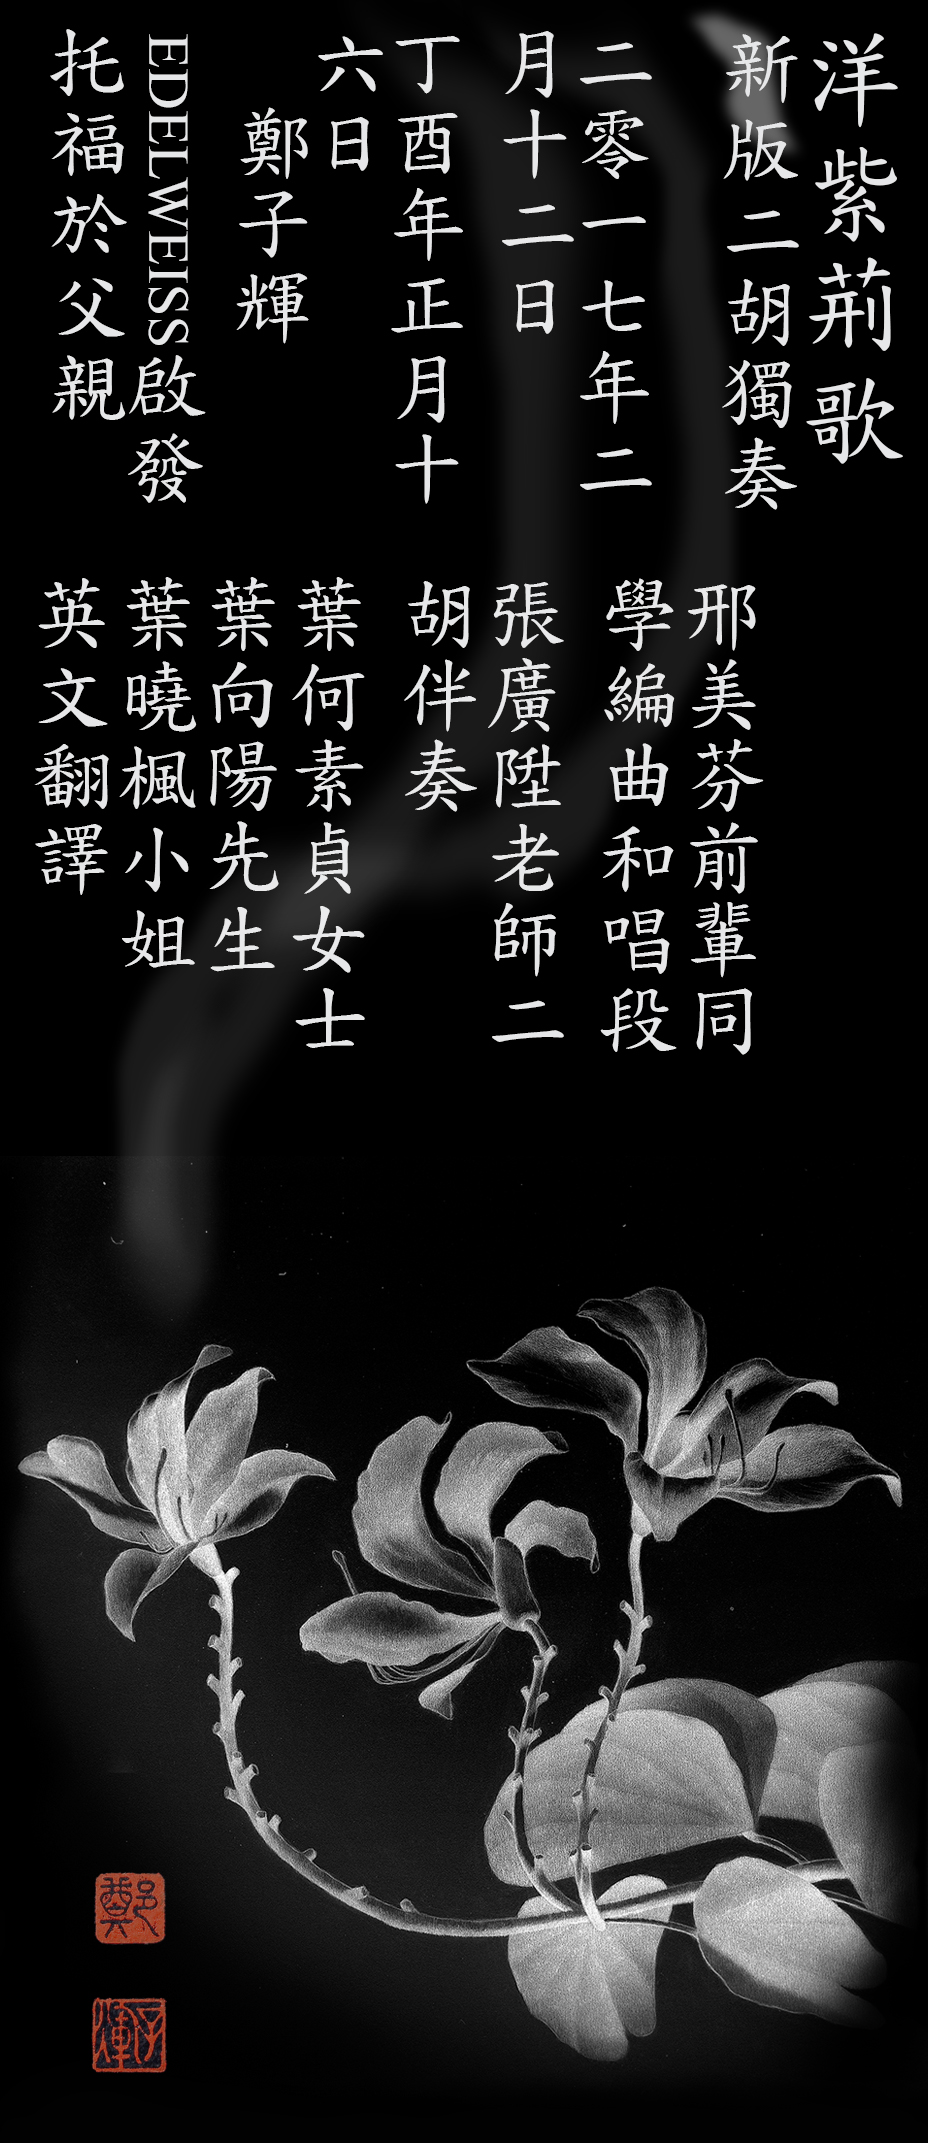 洋紫荊歌
新版二胡獨奏
二零一七年二
月十二日
丁酉年正月十
六日
鄭子輝
EDELWEISS啟發
托福於父親
邢美芬前輩同
學編曲和唱段
張廣陞老師二
胡伴奏
葉何素貞女士
葉向陽先生
葉曉楓小姐
英文翻譯
鄭
子輝